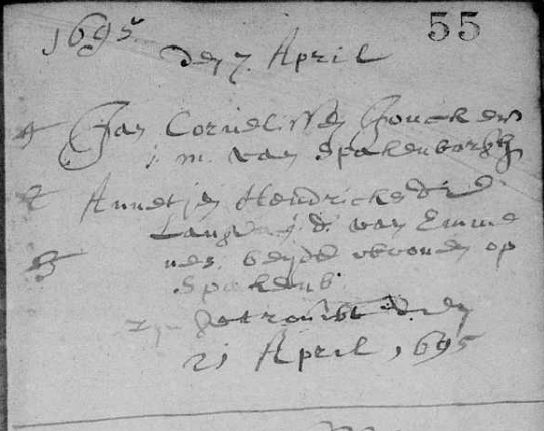 55
1695.
den 7. April
Jan Cornelissen Jonckers
j. m. van Spakenborgh
Annetjen Hendricks de
Lange j. d. van Emme
nes. beyde wonen op
Spakenb.
zyn getrouwt den
21 April 1695